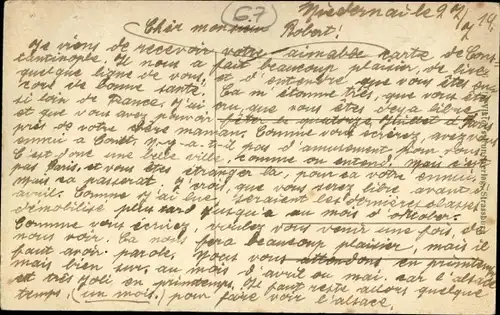 C.7
Niedernai le 22/7 19.
Cher monsieur Robert!
Je viens de recevoir votre aimable carte de Cons-
tantinople. Il nous a fait beaucoup plaisier, de lire
quelque ligne de vous, et d'entendre que vous êtes en-
core de bonne santé. Ca m'étonne très, que vous êtes
si loin de France. J'ai cru, que vous êtes déja libre
et que vous avez pouvoir fêter le quatorze Juillet
près de votre chère maman. Comme vous écrivez, avez vous
ennui à Const. N-y-a-t-il pas d'amusement pour vous.
C'est donc une belle ville, comme on entend. Mais c'est
pas Paris, et vous êtes étranger la, pour sa votre ennui.
Mais sa passerat. J'crois, que vous serez libre avant
avril. Comme j'ai lue seraient les dernières classes
démobilisé plus tard jusqu'a au mois d'oktober.
Comme vous écrivez, voulez vous venir une fois, de
nous voir. Ca nous fera beaucoup plaisier, mais il
faut avoir parole. Nous vous attendons en printemps
mais bien sur. au mois d'avril ou mai. car l'alsace
est très joli en printemps. Il faut reste alors quelque
temps, (un mois.) pour faire voir l'alsace.